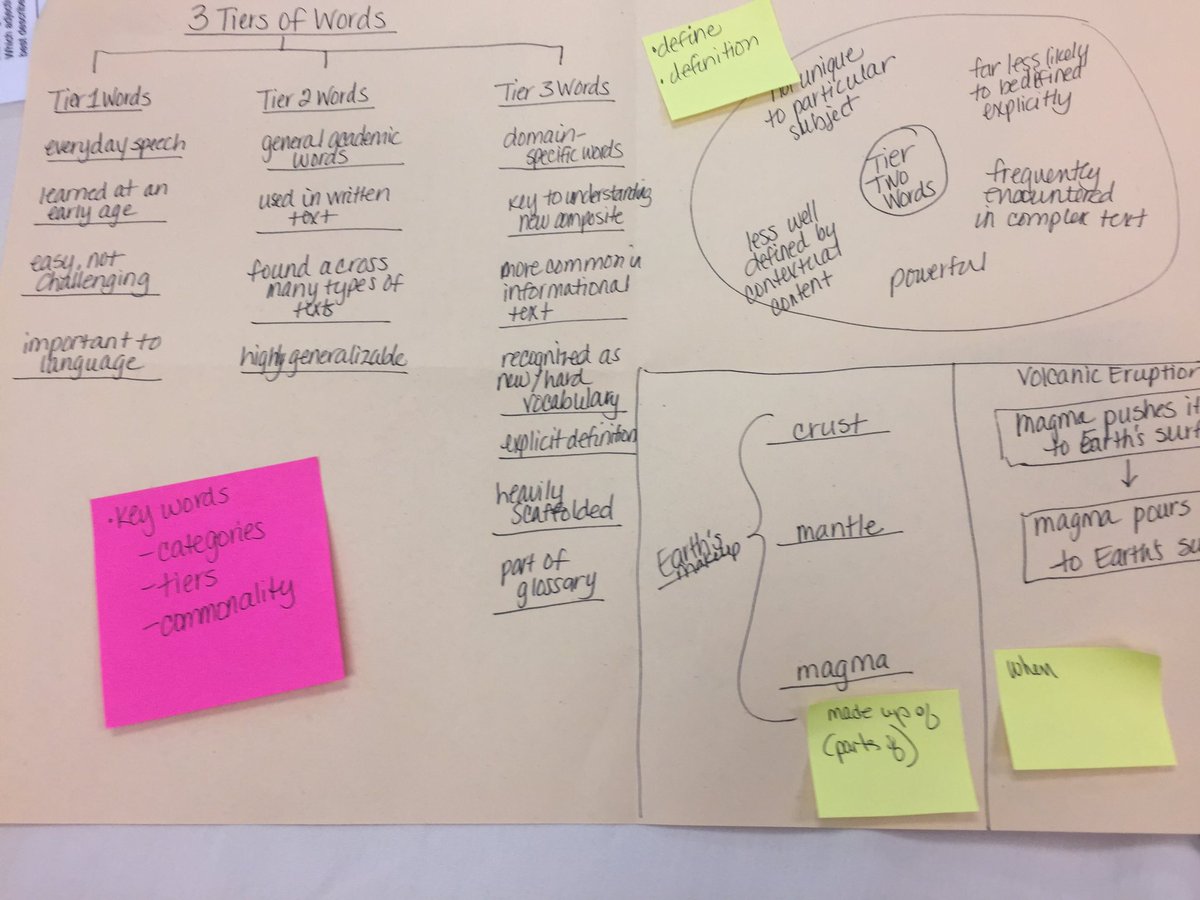 Which adjecti
best describe
3 Tiers of Words
Tier 1 Words
everyday speech
learned at an
early age
easy, not
challenging
important to
language
Tier 2 Words
general academic
words
used in written
text
found across
many types of
texts
highly generalizable
Tier 3 Words
domain-
specific words
key to understanding
new composite
more common in
informational
text
recognized as
new/hard
vocabulary
explicit definition
heavily
scaffolded
part of
glossary
•Key words
-categories
-tiers
-commonality
•define
•definition
not unique
to particular
subject
far less likely
to be defined
explicitly
Tier
Two
Words
frequently
encountered
in complex text
less well
defined by
contextual
content
powerful
Earth's
makeup
crust
mantle
magma
made up of
(parts of)
Volcanic Eruption
magma pushes it
to Earth's surf
magma pours
to Earth's su
when